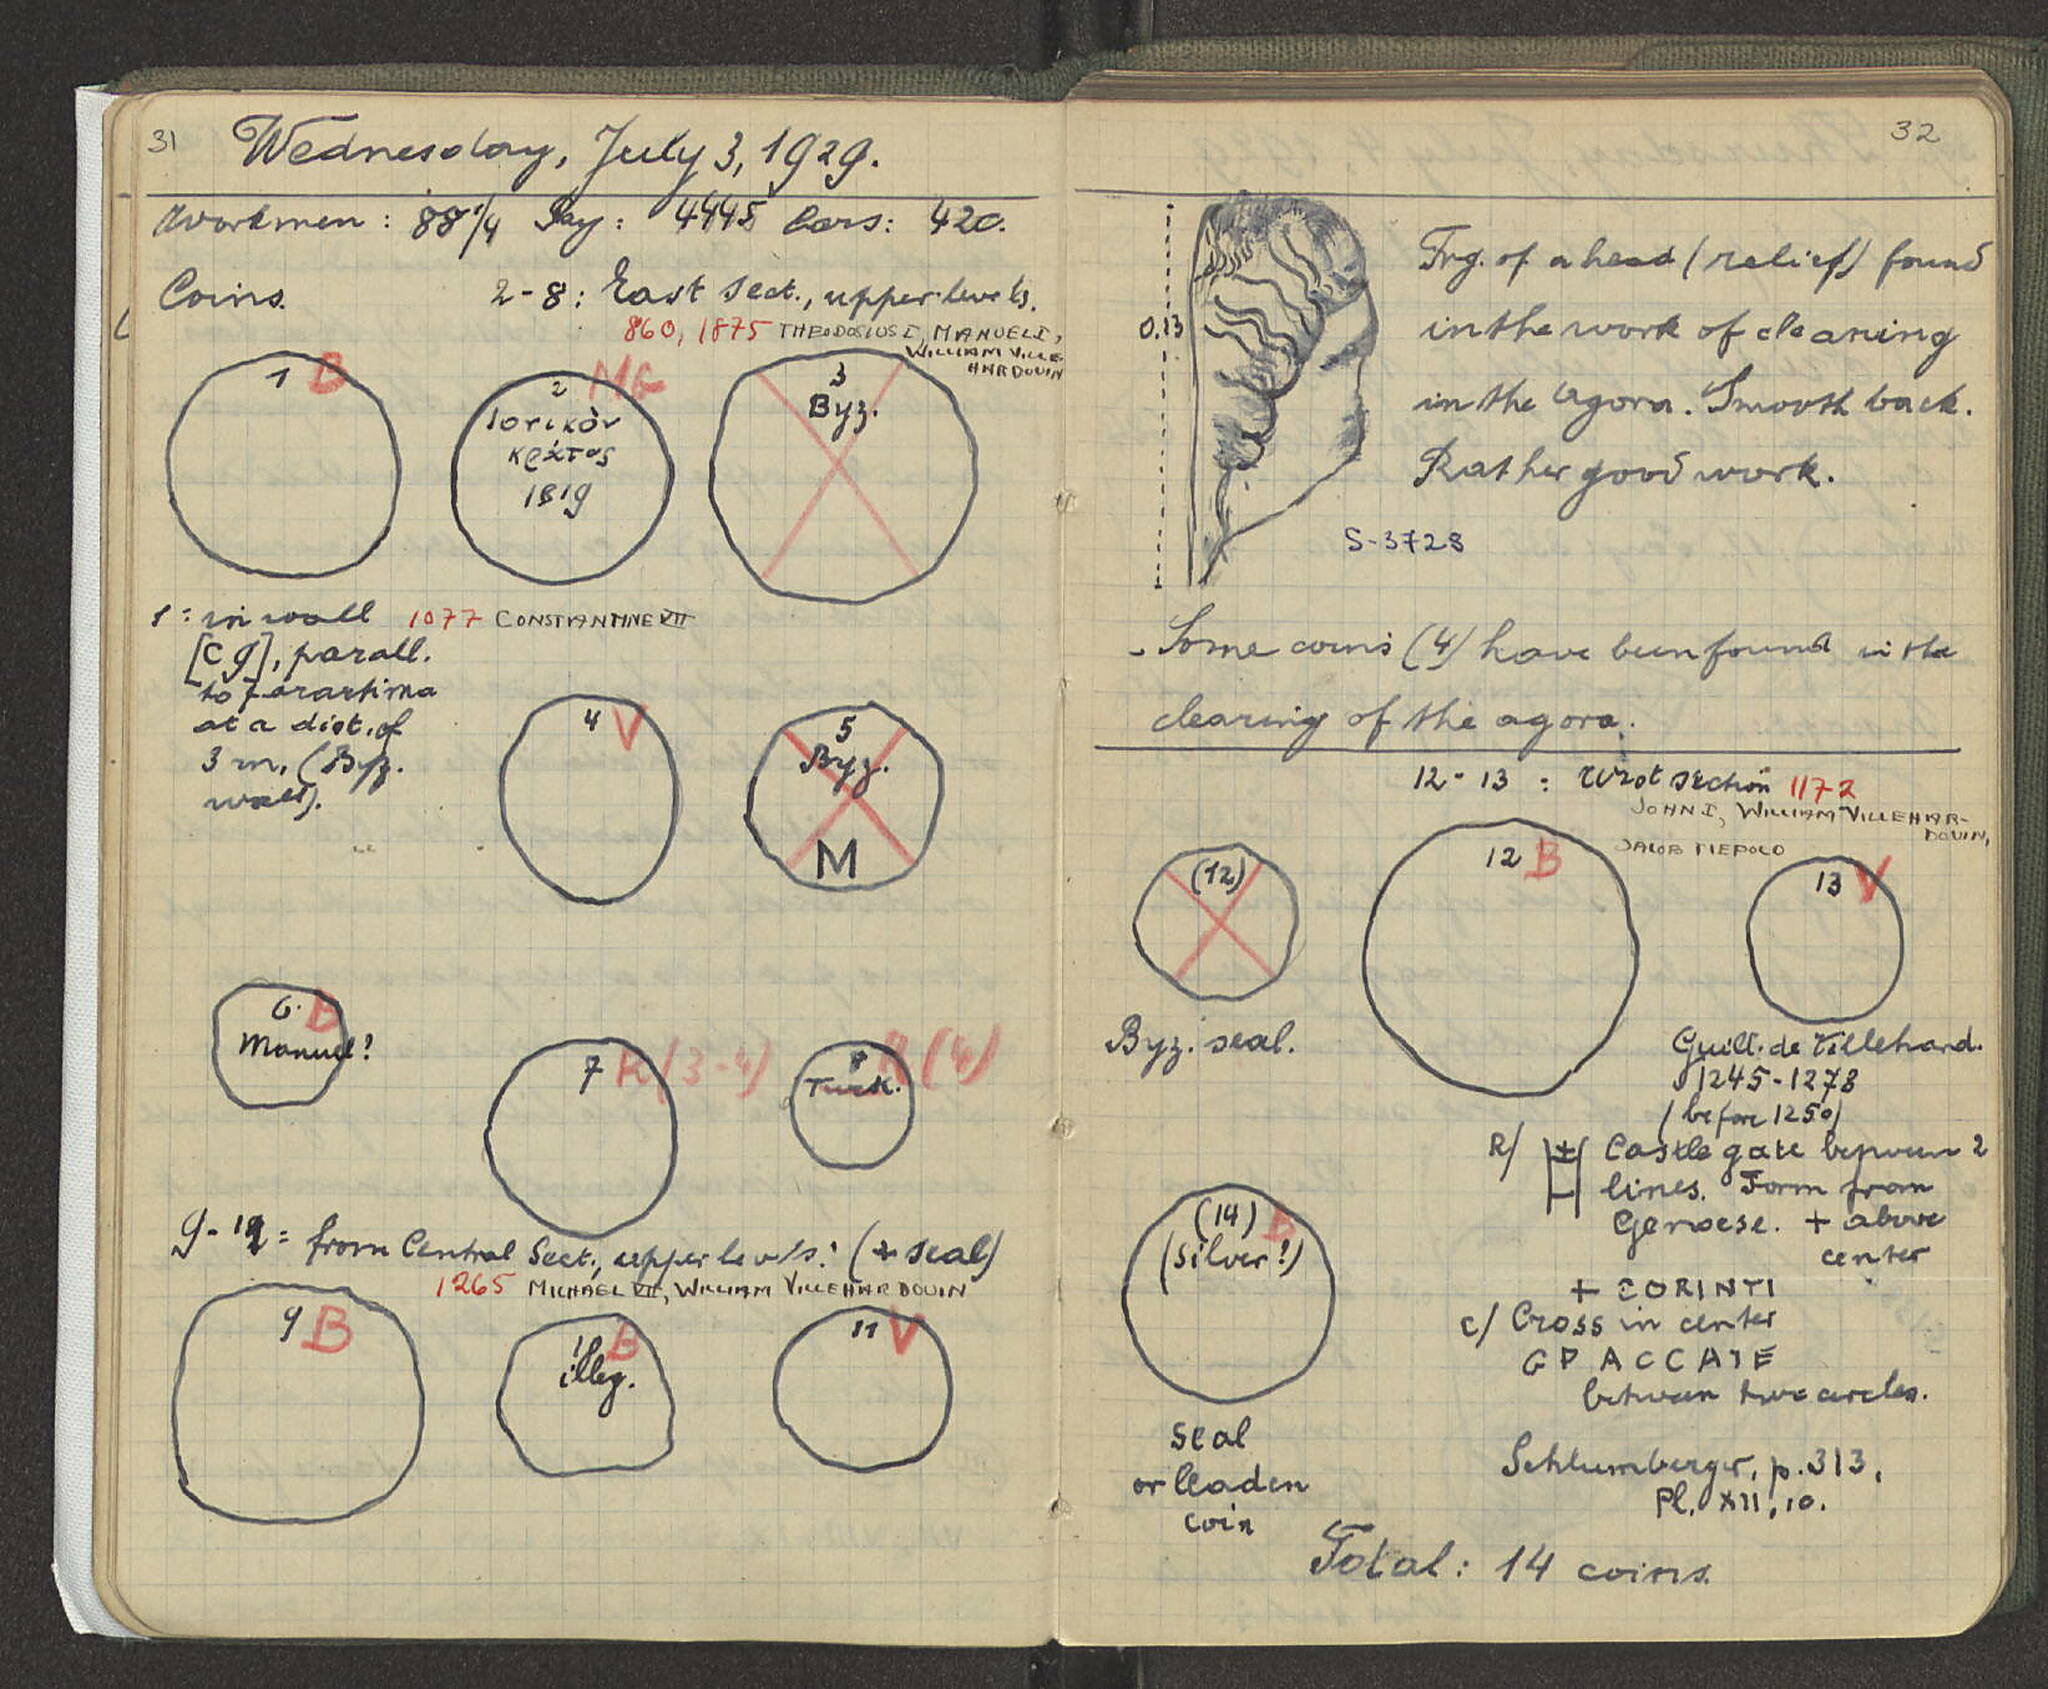 31
Wednesday, July 3, 1929.
Workmen: 88 1/4 Pay: 4445 Cars: 420.
Coins. 2-8: East sect., upper levels.
860, 1875 THEODOSIUS I, MANUEL I,
WILLIAM VILLE
HARDOUIN
1 B
2 ME
Ιονικὸν
κράτος
1819
3
Byz.
1: in wall 1077 CONSTANTINE VII
[C g], parall.
to
at a dist. of
3 m. (Byz.
wall).
4 V
5
Byz.
M
6. B
Manuel?
7 R (3-4)
8 R (4)
Turk.
9-12= from Central Sect., upper levels. (+ seal)
1265 MICHAEL VII, WILLIAM VILLEHARDOUIN
9 B
B
illeg.
11 V
32
0.13
Frg. of a head (relief) found
in the work of cleaning
in the Agora. Smooth back.
Rather good work.
S-3728
- Some coins (4) have been found in the
clearing of the agora.
12-13 : West section 1172
JOHN I, WILLIAM VILLEHAR-
DOUIN,
JACOB TIEPOLO
(12)
12 B
13 V
Byz. seal.
Guill. de Villehard.
1245-1278
(before 1250)
R/ Castle gate between 2
lines. Form from
Genoese. + above
center
+ CORINTI
c/ Cross in center
G P ACCAIE
between two circles.
(14) B
(silver?)
Seal
or leaden
coin
Schlumberger, p. 313,
Pl. XII, 10.
Total: 14 coins.